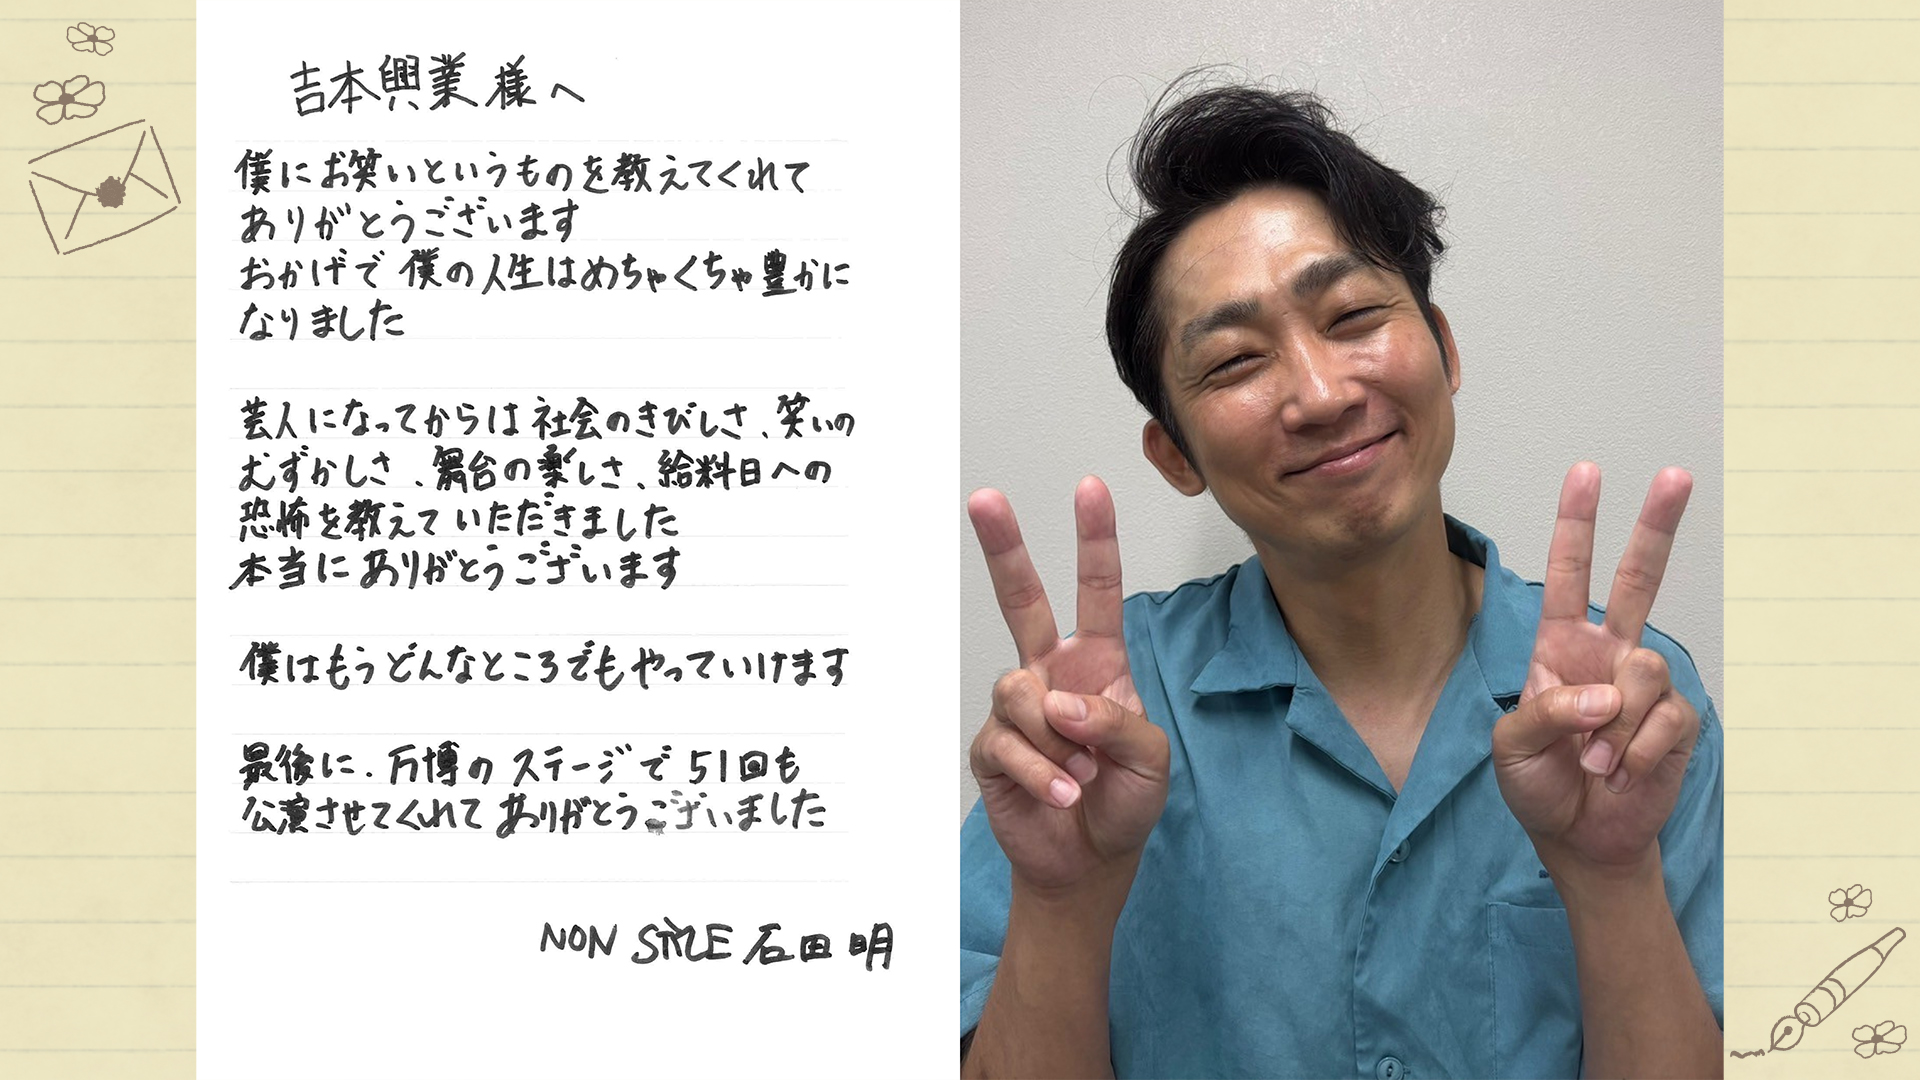 吉本興業様へ
僕にお笑いというものを教えてくれて
ありがとうございます
おかげで僕の人生はめちゃくちゃ豊かに
なりました
芸人になってからは社会のきびしさ、笑いの
むずかしさ、舞台の楽しさ、給料日への
恐怖を教えていただきました
本当にありがとうございます
僕はもうどんなところでもやっていけます
最後に、万博のステージで51回も
公演させてくれてありがとうございました
NON STYLE 石田明